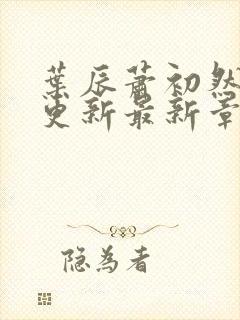 葉辰蕭初然
更新最新章
隐為者